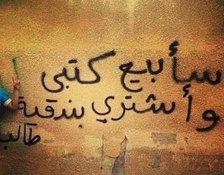 سأبيع كتبي
وأشتري بندقية
طالب